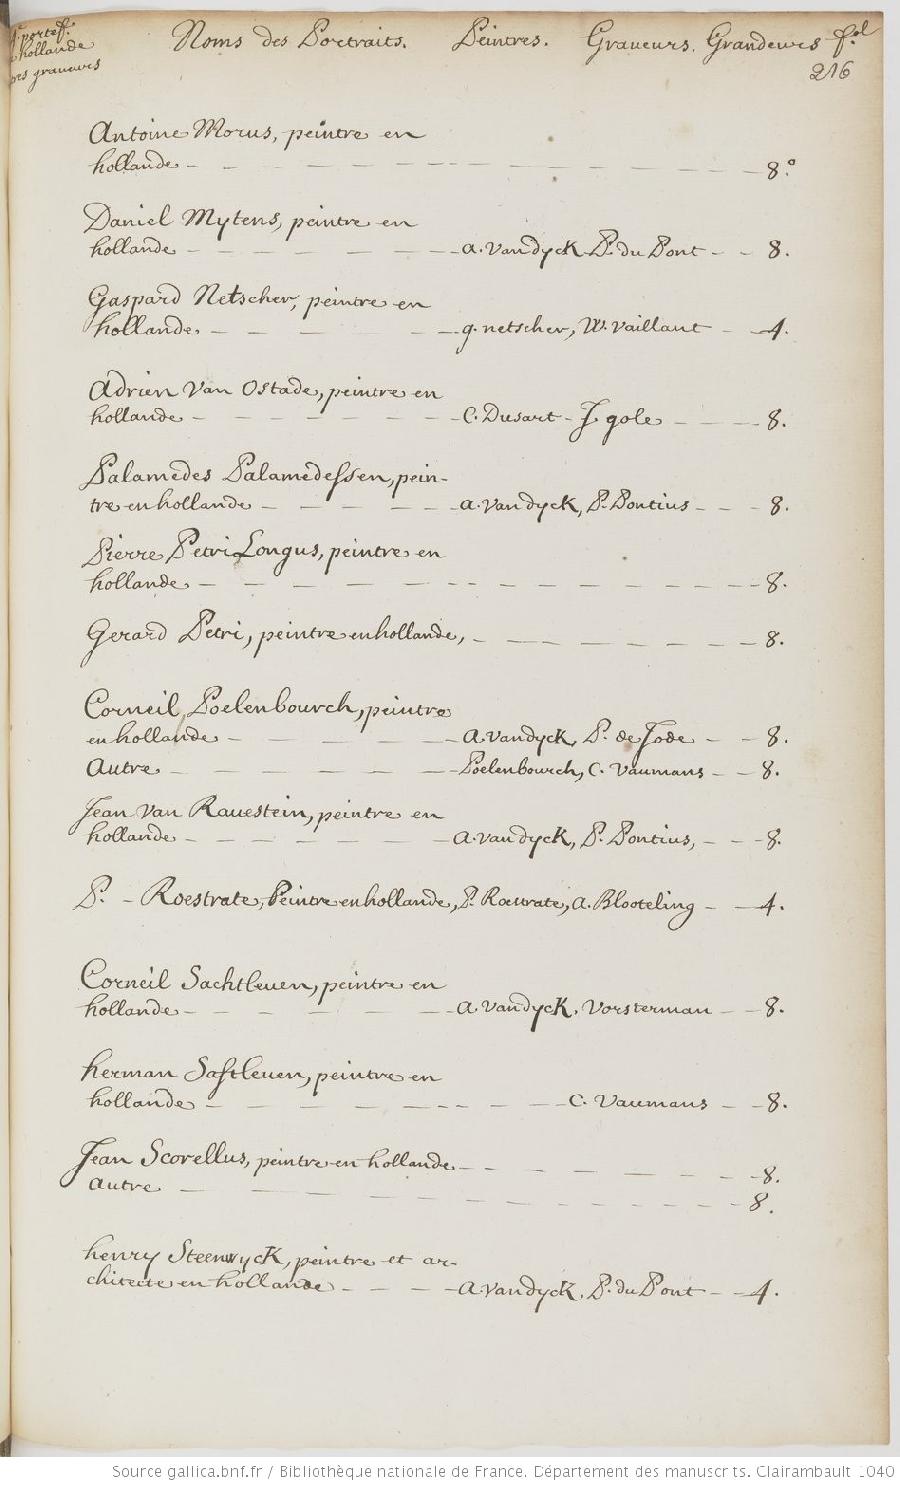 portef.
hollande
graveurs
Noms des Portraits. Peintres. Graveurs. Grandeurs fol
216
Antoine Morus, peintre en
hollande - - - - - - - - 8.°
Daniel Mytens, peintre en
hollande - - - - - a. vandyck P. du Pont - - 8.
Gaspard Netscher, peintre en
hollande. - - - - - g. netscher, W. Vaillant - - 4.
Adrien Van Ostade, peintre en
hollande - - - - - C. Dusart - J gole - - - 8.
Palamedes Palamedessen, pein-
tre en hollande - - - - a. vandyck, P. Pontius - - - 8.
Pierre Petri Longus, peintre en
hollande - - - - - - - - 8.
Gerard Petri, peintre en hollande, - - - - - - 8.
Corneil Poelenbourch, peintre
en hollande - - - - - A. vandyck, P. de Jode - - 8.
Autre - - - - - Poelenbourch, C. Vaumans - - 8.
Jean Van Ravestein, peintre en
hollande - - - - - a. vandyck, P. Pontius, - - - 8.
P. - Roestrate, Peintre en hollande, P. Roestrate, a. Blooteling - - 4.
Corneil Sachtleven, peintre en
hollande - - - - - a Vandyck. Vorsterman - - 8.
herman Saftleven, peintre en
hollande - - - - - - - C. Vaumans - - 8.
Jean Scorellus, peintre en hollande - - - - - - 8.
autre - - - - - - - 8.
henry Steenwyck, peintre et ar-
chitecte en hollande - - - - a. vandyck. P. du Pont - - 4.
Source gallica.bnf.fr / Bibliothèque nationale de France. Département des manuscrits. Clairambault 1040